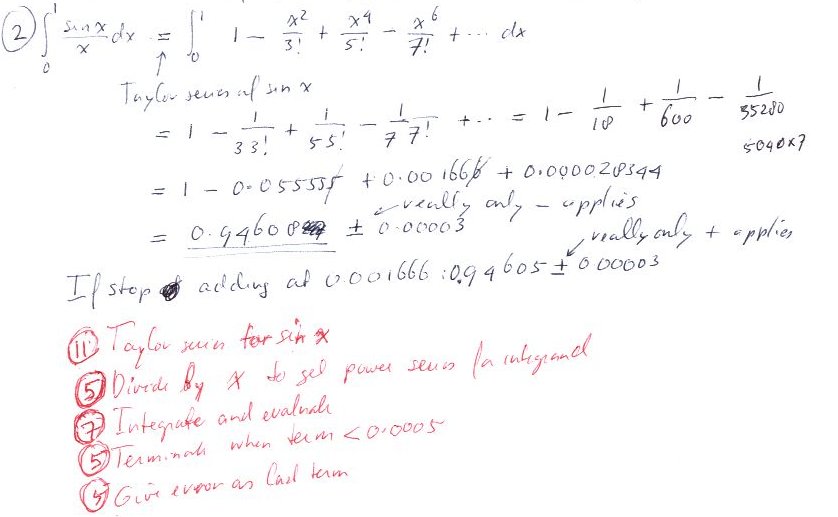 ② ∫₀¹ sin x / x dx = ∫₀¹ 1 - x²/3! + x⁴/5! - x⁶/7! + ... dx
↑
Taylor series of sin x
= 1 - 1/33! + 1/55! - 1/77! + ... = 1 - 1/18 + 1/600 - 1/35280
5040×7
= 1 - 0.055555 + 0.001666 + 0.000028344
really only - applies
= 0.94608 ± 0.00003
really only + applies
If stop adding at 0.001666 : 0.94605 ± 0.00003
⑪ Taylor series for sin x
⑤ Divide by x to get power series for integrand
⑦ Integrate and evaluate
⑤ Terminate when term < 0.0005
⑤ Give error as last term